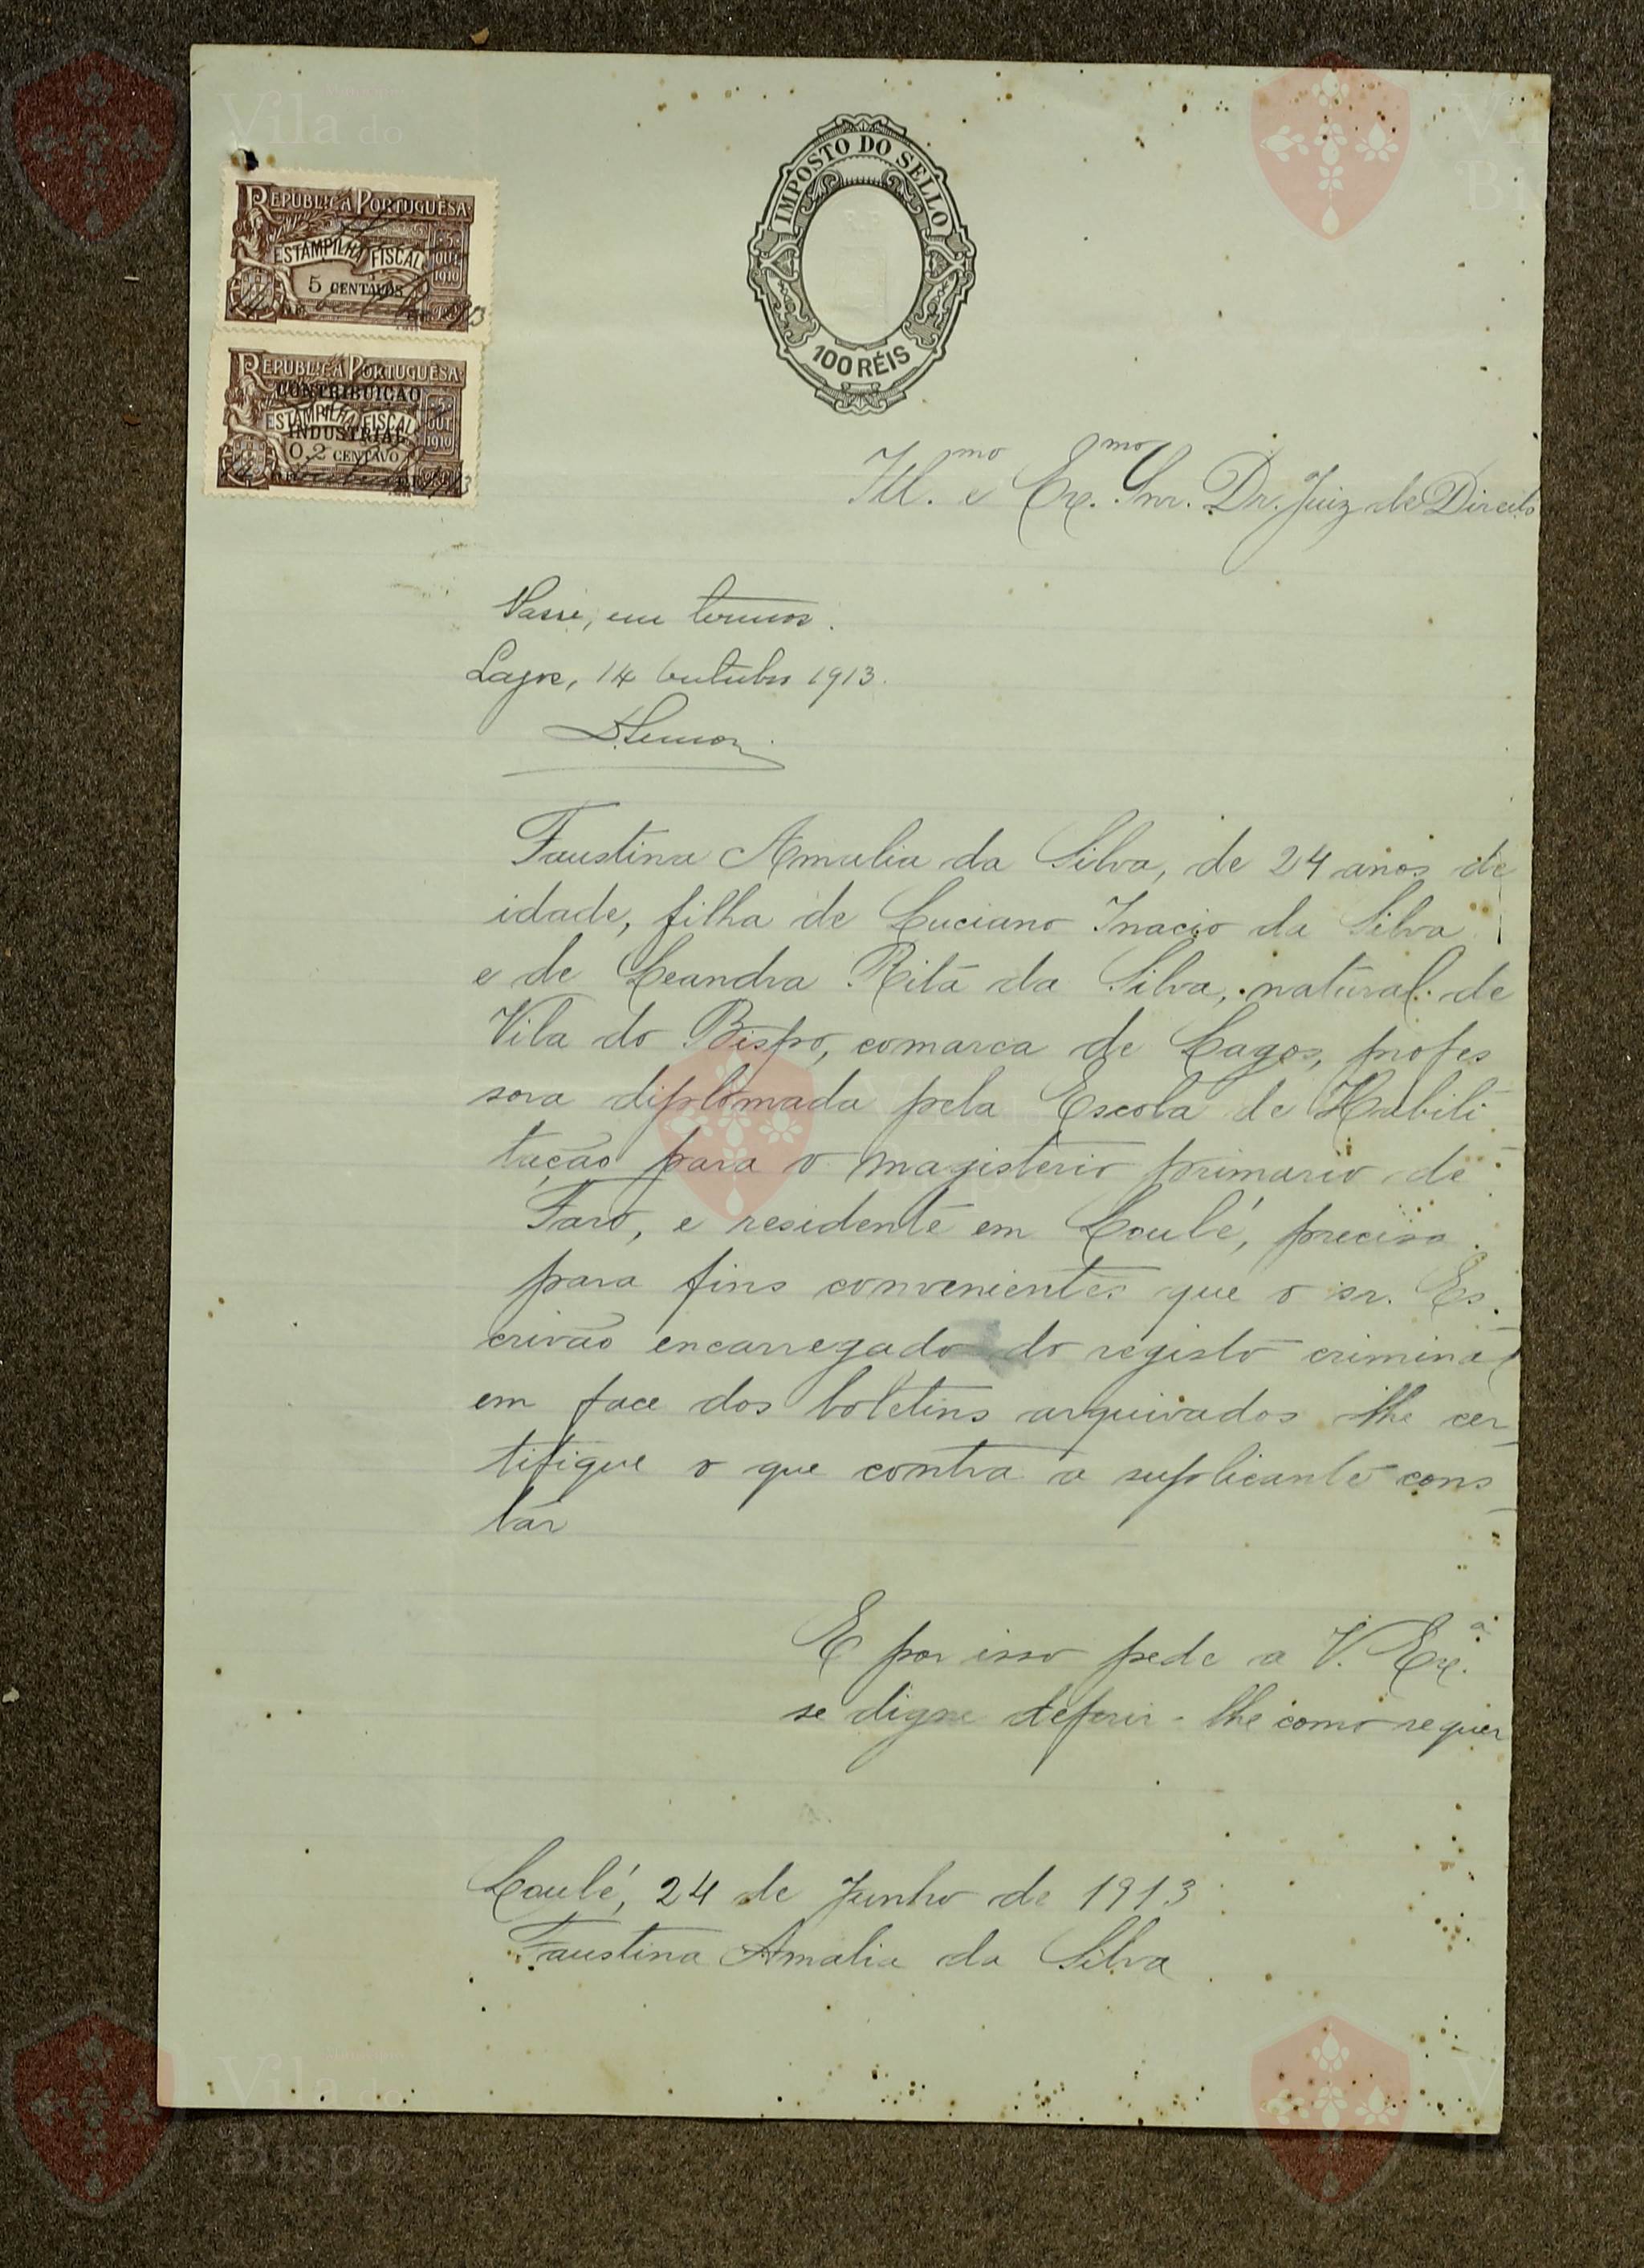 Município
Vila do
Bispo
REPUBLICA PORTUGUESA
ESTAMPILHA FISCAL
5 OUT. 1910
5 CENTAVOS
REPUBLICA PORTUGUESA
CONTRIBUIÇÃO
ESTAMPILHA FISCAL
INDUSTRIAL
5 OUT. 1910
0,2 CENTAVO
IMPOSTO DO SELLO
100 RÉIS
Ill.mo e Ex.mo Snr. Dr. Juiz de Direito
Passe, em termos.
Lagos, 14 Outubro 1913.
Faustina Amalia da Silva, de 24 anos de
idade, filha de Luciano Inacio da Silva
e de Leandra Rita da Silva, natural de
Vila do Bispo, comarca de Lagos, profes
sora diplomada pela Escola de Habili
tação para o magisterio primario de
Faro, e residente em Loulé, precisa
para fins convenientes que o sr. Es-
crivão encarregado do registo criminal
em face dos boletins arquivados lhe cer-
tifique o que contra a suplicante cons-
tar
E por isso pede a V. Ex.a
se digne deferir-lhe como requer
Loulé, 24 de Junho de 1913
Faustina Amalia da Silva
Vila do
Bispo